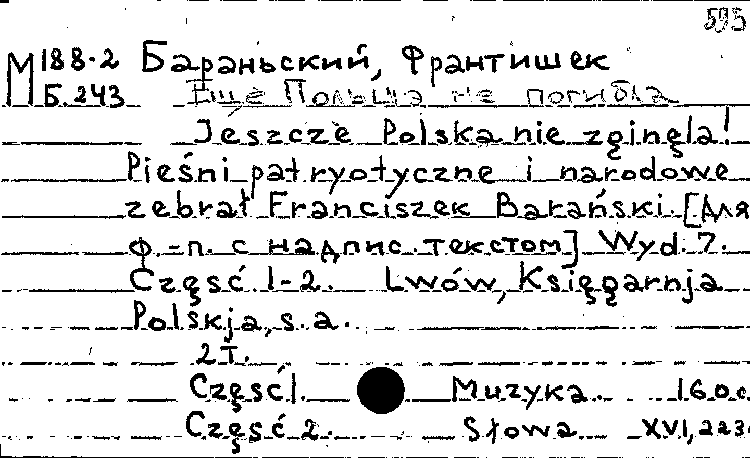 595
М 188-2 Бараньский, Франтишек
Б.243 Еще Польша не погибла
Jeszcze Polska nie zginęla!
Pieśni patryotyczne i narodowe
zebrał Franciszek Barański. [Для
ф.-п. с надпис. текстом] Wyd. 7.
Część 1-2. Lwów, Księgarnja
Polskja, s.a.
2 т.
Część 1. Muzyka. 160 c.
Część 2. Słowa XVI, 223